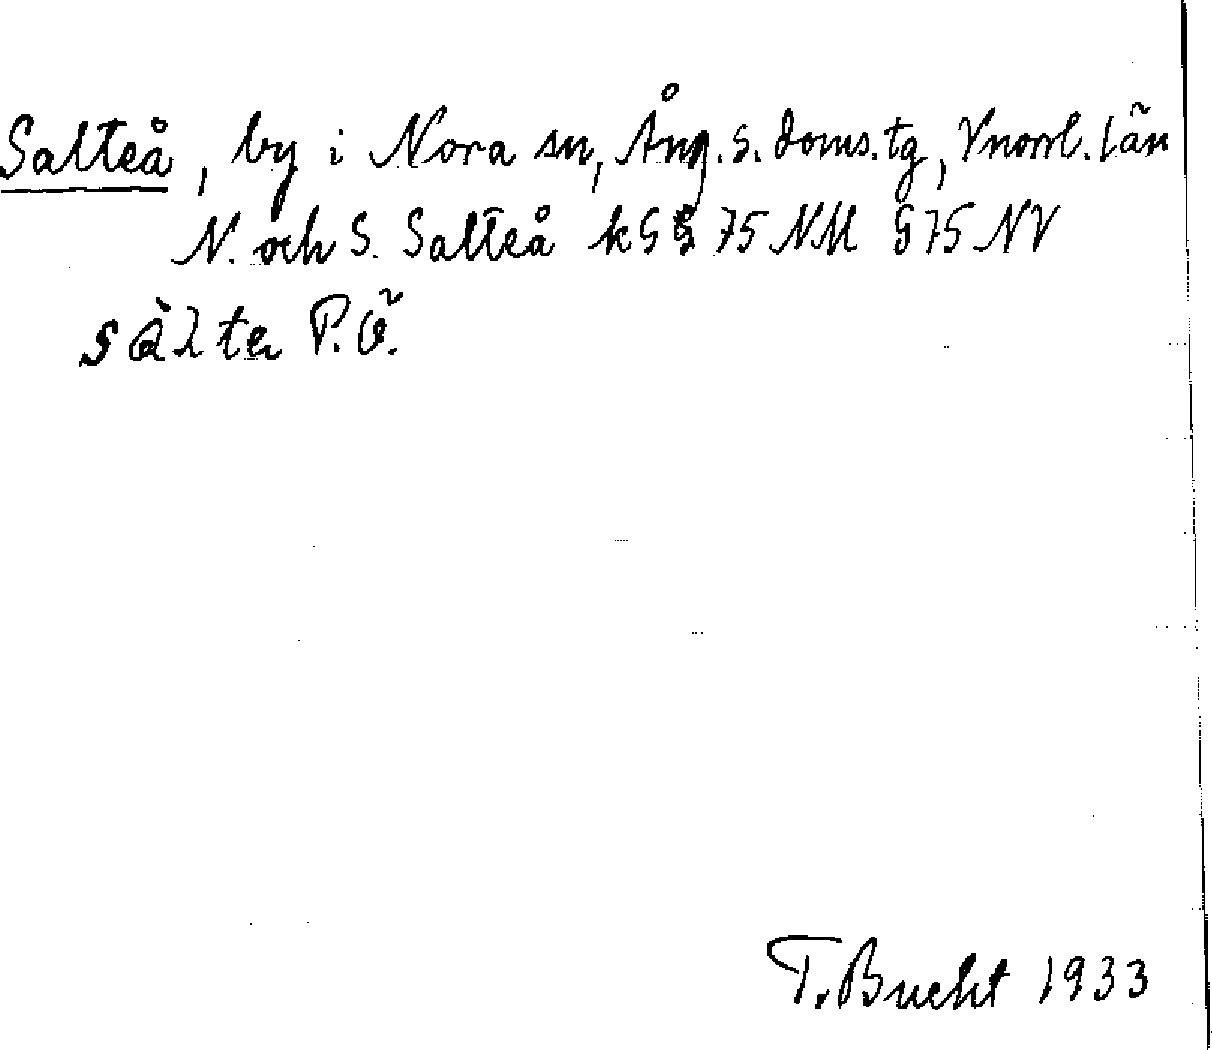 Salteå, by i Nora sn, Ång. s. doms. tg, Vnorrl. län
N. och S. Salteå k G § 75 NM § 75 NV
sàlta P. Ö.
T. Bucht 1933